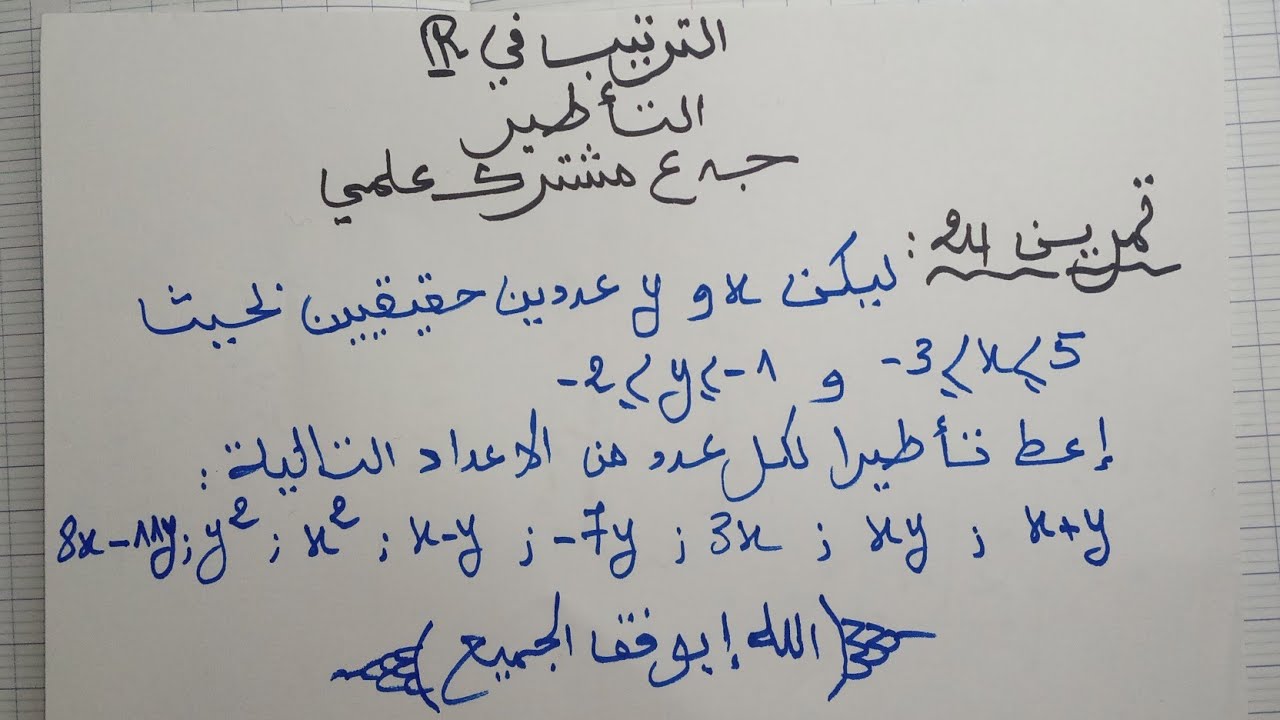 الترتيب في ℝ
التأطير
جدع مشترك علمي
تمرين 24 :
ليكن x و y عددين حقيقيين بحيث
-3⩽x⩽5 و -2⩽y⩽-1
إعط تأطيرا لكل عدد من الاعداد التالية :
x+y ; xy ; 3x ; -7y ; x-y ; x² ; y² ; 8x-11y
(الله إيوفقا الجميع)